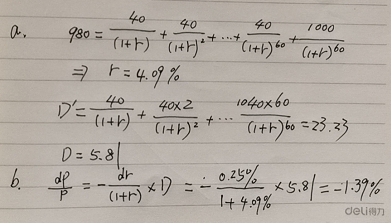 a. 980 = 40/(1+r) + 40/(1+r)² + ... + 40/(1+r)⁶⁰ + 1000/(1+r)⁶⁰
⇒ r = 4.09%
D' = 40/(1+r) + 40×2/(1+r)² + ... 1040×60/(1+r)⁶⁰ = 23.23
D = 5.81
b. dP/P = - dr/(1+r) × D = - 0.25%/1+4.09% × 5.81 = -1.39%
deli得力